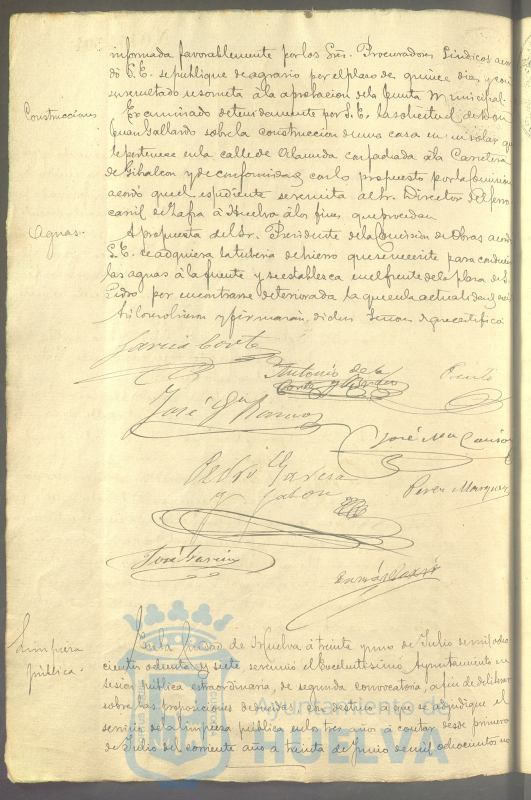 informada favorablemente por los Sres. Procuradores Síndicos acor
dó S. E. se publique de agravio por el plazo de quince dias y con
su resultado se someta á la aprobacion de la Junta Municipal.
Construcciones.
Examinado detenidamente por S. E. la solicitud de Don
Juan Gallardo sobre la construccion de una casa en un solar que
le pertenece en la calle de con fachada á la Carretera
de Gibraleon y de conformidad con lo propuesto por la Comision
acordó que el espediente se remita al Sr. Director del ferro
carril de Zafra á Huelva á los fines que procedan.
Aguas.
A propuesta del Sr. Presidente de la Comision de Obras acordó
S. E. se adquiera la tuberia de hierro que se necesite para conducir
las aguas á la fuente y se establezca en el frente de la plaza de S.
Pedro por encontrarse deteriorada la que en la actualidad
Asi lo resolvieron y firmarán, dichos Señores de que certifico
García Cortés
Antonio de la
Corte y
José Gª Ramos
José Mª
Pedro García
y
Perez Marquez
José García
Limpieza
pública.
En la Ciudad de Huelva á treinta y uno de Julio de mil ocho
cientos ochenta y siete reunido el Excelentísimo Ayuntamiento en
sesion pública extraordinaria, de segunda convocatoria, á fin de deliberar
sobre las proposiciones deducidas, con destino á que se adjudique el
servicio de la limpieza pública en los tres años á contar desde primero
de Julio del corriente año á treinta de Junio de mil ochocientos no
Ayuntamiento de
HUELVA